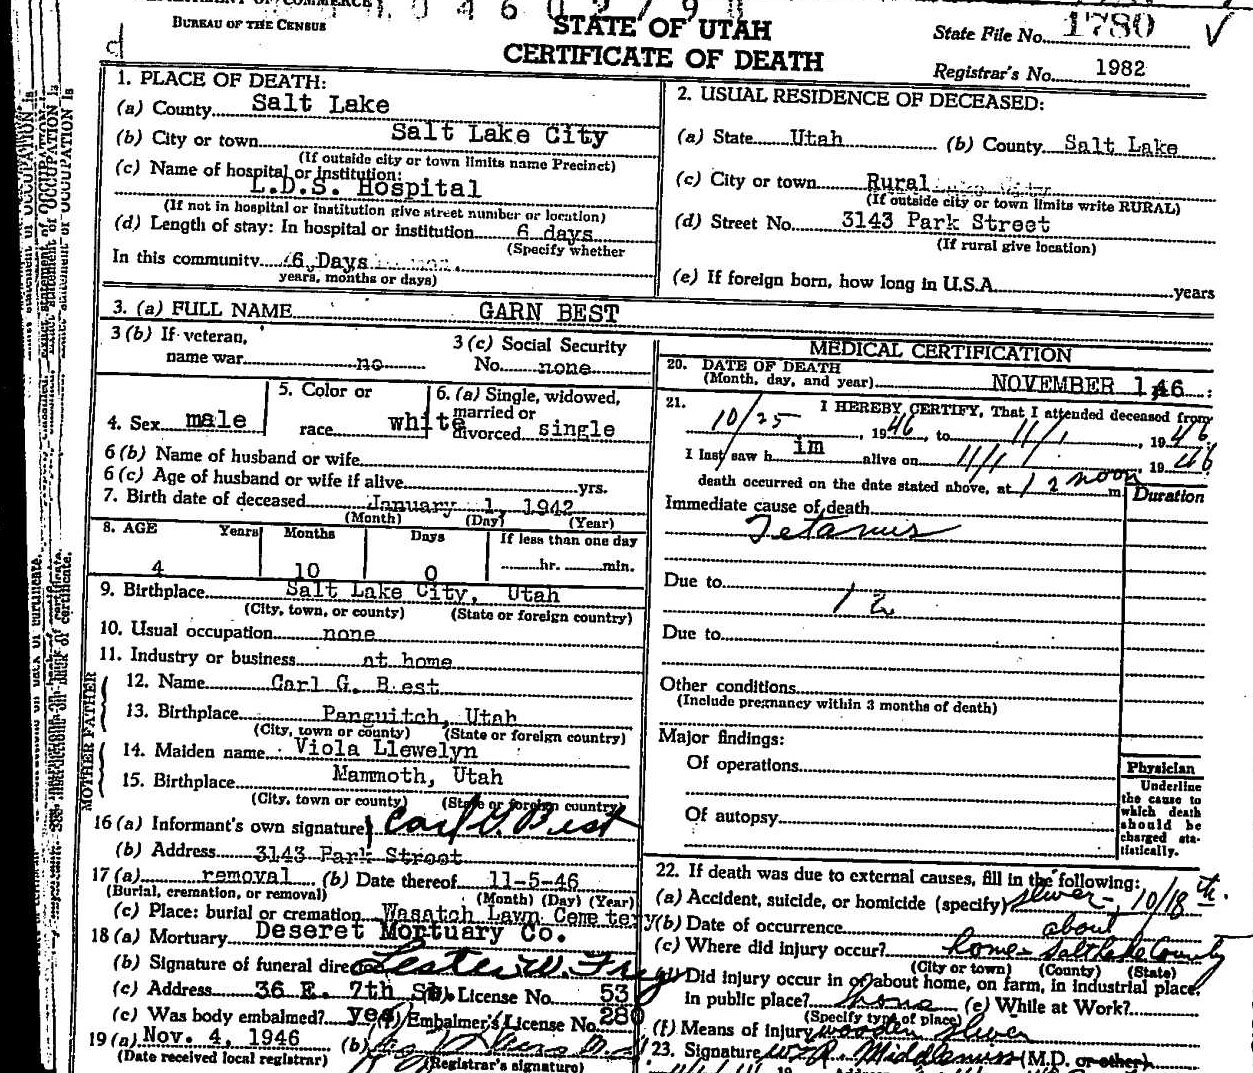 BUREAU OF THE CENSUS
STATE OF UTAH
CERTIFICATE OF DEATH
State File No. 1780
Registrar's No. 1982
1. PLACE OF DEATH:
(a) County Salt Lake
(b) City or town Salt Lake City
(If outside city or town limits name Precinct)
(c) Name of hospital or institution:
L.D.S. Hospital
(If not in hospital or institution give street number or location)
(d) Length of stay: In hospital or institution 6 days
(Specify whether
In this community 6 Days
years, months or days)
2. USUAL RESIDENCE OF DECEASED:
(a) State Utah (b) County Salt Lake
(c) City or town Rural
(If outside city or town limits write RURAL)
(d) Street No. 3143 Park Street
(If rural give location)
(e) If foreign born, how long in U.S.A. years
3. (a) FULL NAME GARN BEST
3 (b) If veteran, name war no
3 (c) Social Security No. none
4. Sex male
5. Color or race white
6. (a) Single, widowed, married or divorced single
6 (b) Name of husband or wife
6 (c) Age of husband or wife if alive yrs.
7. Birth date of deceased January 1, 1942
(Month) (Day) (Year)
8. AGE Years Months Days If less than one day
4 10 0 hr. min.
9. Birthplace Salt Lake City, Utah
(City, town, or county) (State or foreign country)
10. Usual occupation none
11. Industry or business at home
FATHER
12. Name Carl G. Best
13. Birthplace Panguitch, Utah
(City, town or county) (State or foreign country)
MOTHER
14. Maiden name Viola Llewelyn
15. Birthplace Mammoth, Utah
(City, town or county) (State or foreign country)
16 (a) Informant's own signature Carl G. Best
(b) Address 3143 Park Street
17 (a) removal (b) Date thereof 11-5-46
(Burial, cremation, or removal) (Month) (Day) (Year)
(c) Place: burial or cremation Wasatch Lawn Cemetery
18 (a) Mortuary Deseret Mortuary Co.
(b) Signature of funeral director Lester W.
(c) Address 36 E. 7th So. License No. 53
(e) Was body embalmed? yes (f) Embalmer's License No. 280
19 (a) Nov. 4, 1946 (b)
(Date received local registrar) (Registrar's signature)
MEDICAL CERTIFICATION
20. DATE OF DEATH
(Month, day, and year) NOVEMBER 1, 46
21. I HEREBY CERTIFY, That I attended deceased from
10/25, 1946, to 11/1, 1946
I last saw him alive on 11/1 1946
death occurred on the date stated above, at 12 noon m
Duration
Immediate cause of death
Tetanus
Due to
12
Due to
Other conditions
(Include pregnancy within 3 months of death)
Major findings:
Of operations
Of autopsy
Physician
Underline
the cause to
which death
should be
charged sta-
tistically.
22. If death was due to external causes, fill in the following:
(a) Accident, suicide, or homicide (specify) sliver - 10/18th.
(b) Date of occurrence about
(c) Where did injury occur? home - Salt Lake County
(City or town) (County) (State)
Did injury occur in or about home, on farm, in industrial place,
in public place? home (e) While at Work?
(Specify type of place)
(f) Means of injury wooden sliver
23. Signature W.R. Middlemiss (M.D. or other)